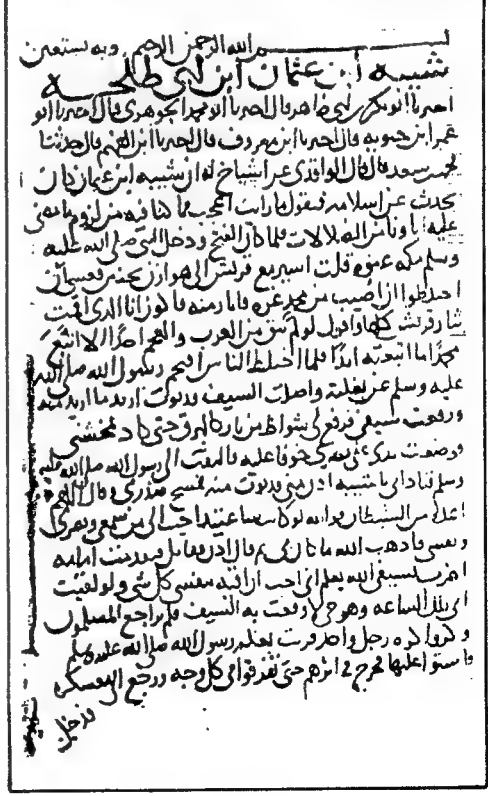 بسم الله الرحمن الرحيم وبه نستعين
شيبه ابن عثمان ابن ابي طلحه
اخبرنا ابو بكر بن ابي طاهر قال اخبرنا ابو محمد الجوهري قال اخبرنا ابو
عمر ابن حيويه قال اخبرنا ابن معروف قال اخبرنا ابن الفهم قال حدثنا
محمد بن سعد قال قال الواقدي عن اشياخ له ان شيبه ابن عثمان كان
يحدث عن اسلامه فيقول ما رايت اعجب مما كنا فيه من لزوم ما مضى
عليه اباونا من الضلالات فلما كان الفتح ودخل النبي صلى الله عليه
وسلم مكه عنوه قلت اسير مع قريش الى هوازن بحنين فعسى ان
اختلطوا ان اصيب من محمد غره فاثار منه فاكون انا الذي اقمت
بثار قريش كلها واقول لو لم يبق من العرب والعجم احد الا اتبع
محمدا ما اتبعته ابدا فلما اختلط الناس اقتحم رسول الله صلى الله
عليه وسلم عن بغلته واصلت السيف فدنوت اريد ما اريد منه
ورفعت سيفي فرفع لي شواظ من نار كالبرق حتى كاد يمحشني
فوضعت يدي على بصري خوفا عليه فالتفت الي رسول الله صلى الله عليه
وسلم فناداني يا شيبه ادن مني فدنوت منه فمسح صدري وقال اللهم
اعذه من الشيطان فوالله لهو كان ساعتئذ احب الي من سمعي وبصري
ونفسي فاذهب الله ما كان في ثم قال ادن فقاتل فتقدمت امامه
اضرب بسيفي الله يعلم اني احب ان اقيه بنفسي كل شي ولو لقيت
ابي تلك الساعه وهو حي لاوقعت به السيف فلم تراجع المسلمون
وكروا كره رجل واحد قربت بغله رسول الله صلى الله عليه وسلم
فاستوى عليها فخرج في اثرهم حتى تفرقوا في كل وجه ورجع الى معسكره
فدخل